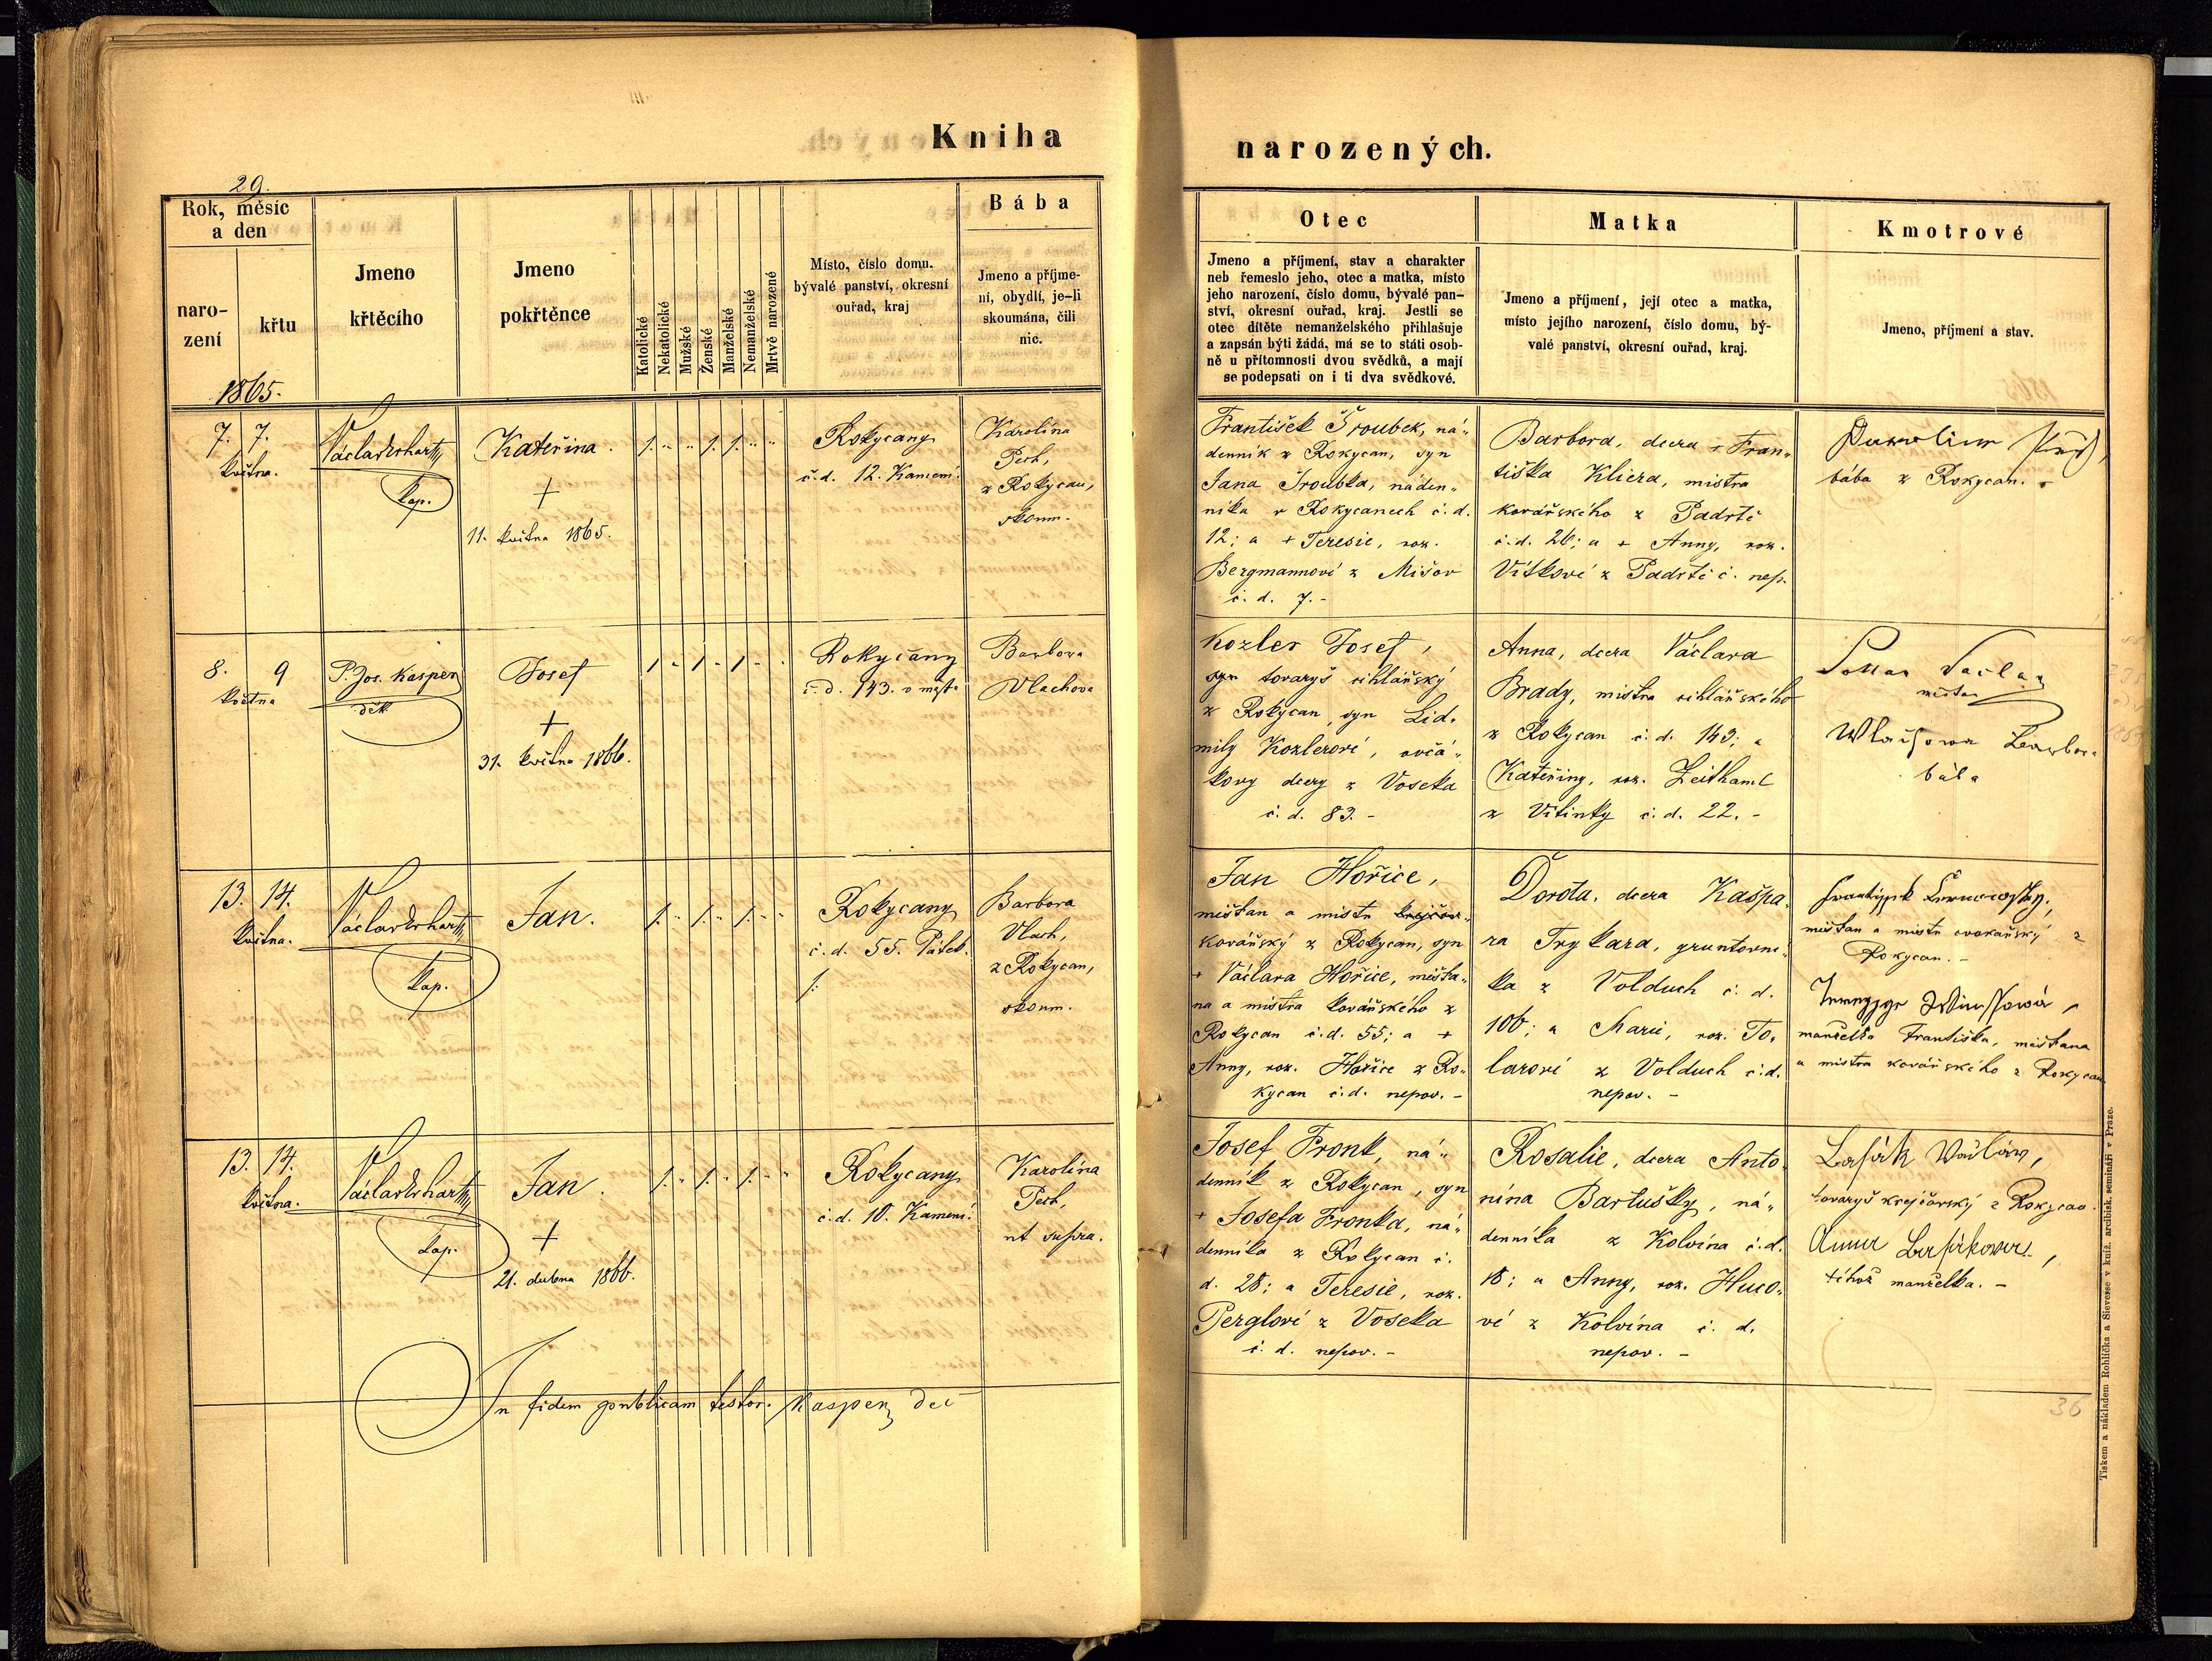 Kniha
narozených.
29.
Rok, měsíc
a den
naro-
zení
křtu
1865.
Jmeno
křtěcího
Jmeno
pokřtěnce
Katolické
Nekatolické
Mužské
Ženské
Manželské
Nemanželské
Mrtvě narozené
Místo, číslo domu.
bývalé panství, okresní
ouřad, kraj
Bába
Jmeno a příjme-
ní, obydlí, je-li
skoumána, čili
nic.
Otec
Jmeno a příjmení, stav a charakter
neb řemeslo jeho, otec a matka, místo
jeho narození, číslo domu, bývalé pan-
ství, okresní ouřad, kraj. Jestli se
otec dítěte nemanželského přihlašuje
a zapsán býti žádá, má se to státi osob-
ně u přítomnosti dvou svědků, a mají
se podepsati on i ti dva svědkové.
Matka
Jmeno a příjmení, její otec a matka,
místo jejího narození, číslo domu, bý-
valé panství, okresní ouřad, kraj.
Kmotrové
Jmeno, příjmení a stav.
7. 7.
května.
Václav Erhart,
kap.
Kateřina.
+
11. května 1865.
Rokycany
č. d. 12. Kamení.
Karolína
Pech,
z Rokycan,
skoum.
František Šroubek, ná-
denník z Rokycan, syn
Jana Šroubka, náden-
níka v Rokycanech č. d.
12; a + Teresie, roz.
Bergmannové z Mišov
č. d. 7. -
Barbora, dcera + Fran-
tiška Kliera, mistra
kovářského z Padrtě
č. d. 26; a + Anny, roz.
Vítkové z Padrtě č. nep.
bába z Rokycan. -
8. 9
května
P. Jos. Kasper
děk
Josef
+
31. května 1866.
Rokycany
č. d. 143. v městě
Barbora
Vlachova
Kozler Josef,
syn tovaryš cihlářský
z Rokycan, syn Lid-
mily Kozlerové, ovčá-
kovy dcery z Voseka
č. d. 83. -
Anna, dcera Václava
Brady, mistra cihlářského
z Rokycan č. d. 143; a
Kateřiny, roz. Leithaml
z Vitinky č. d. 22. -
Václav
Barbora
bába
13. 14.
května.
Václav Erhart,
kap.
Jan.
Rokycany
č. d. 55. Pátek.
Barbora
Vlach,
z Rokycan,
skoum.
Jan Hořice,
měšťan a mistr krejčov-
kovářský z Rokycan, syn
+ Václava Hořice, měšťa-
na a mistra kovářského z
Rokycan č. d. 55; a +
Anny, roz. Hořice z Ro-
kycan č. d. nepov. -
Dorota, dcera Kašpa-
ra Trykara, gruntovní-
ka z Volduch č. d.
106; a Marie, roz. To-
larové z Volduch č. d.
nepov. -
měšťan a mistr z
Rokycan. -
manželka Františka, měšťana
a mistra kovářského z Rokycan
13. 14.
května.
Václav Erhart,
kap.
Jan.
+
21. dubna 1866.
Rokycany
č. d. 10. Kamení.
Karolína
Pech,
ut supra.
Josef Fronk, ná-
denník z Rokycan, syn
+ Josefa Fronka, ná-
denníka z Rokycan č.
d. 28; a Teresie, roz.
Perglové z Voseka
č. d. nepov. -
Rosalie, dcera Anto-
nína Bartušky, ná-
denníka z Kolvína č. d.
18; a Anny, roz. Huco-
vé z Kolvína č. d.
nepov. -
Lasák Václav,
tovaryš krejčovský z Rokycan.
Anna Lasáková,
téhož manželka. -
In fidem publicam testor. Kasper, dec
36
Tiskem a nákladem Rohlíčka a Sieverse v kníž. arcibisk. semináři v Praze.